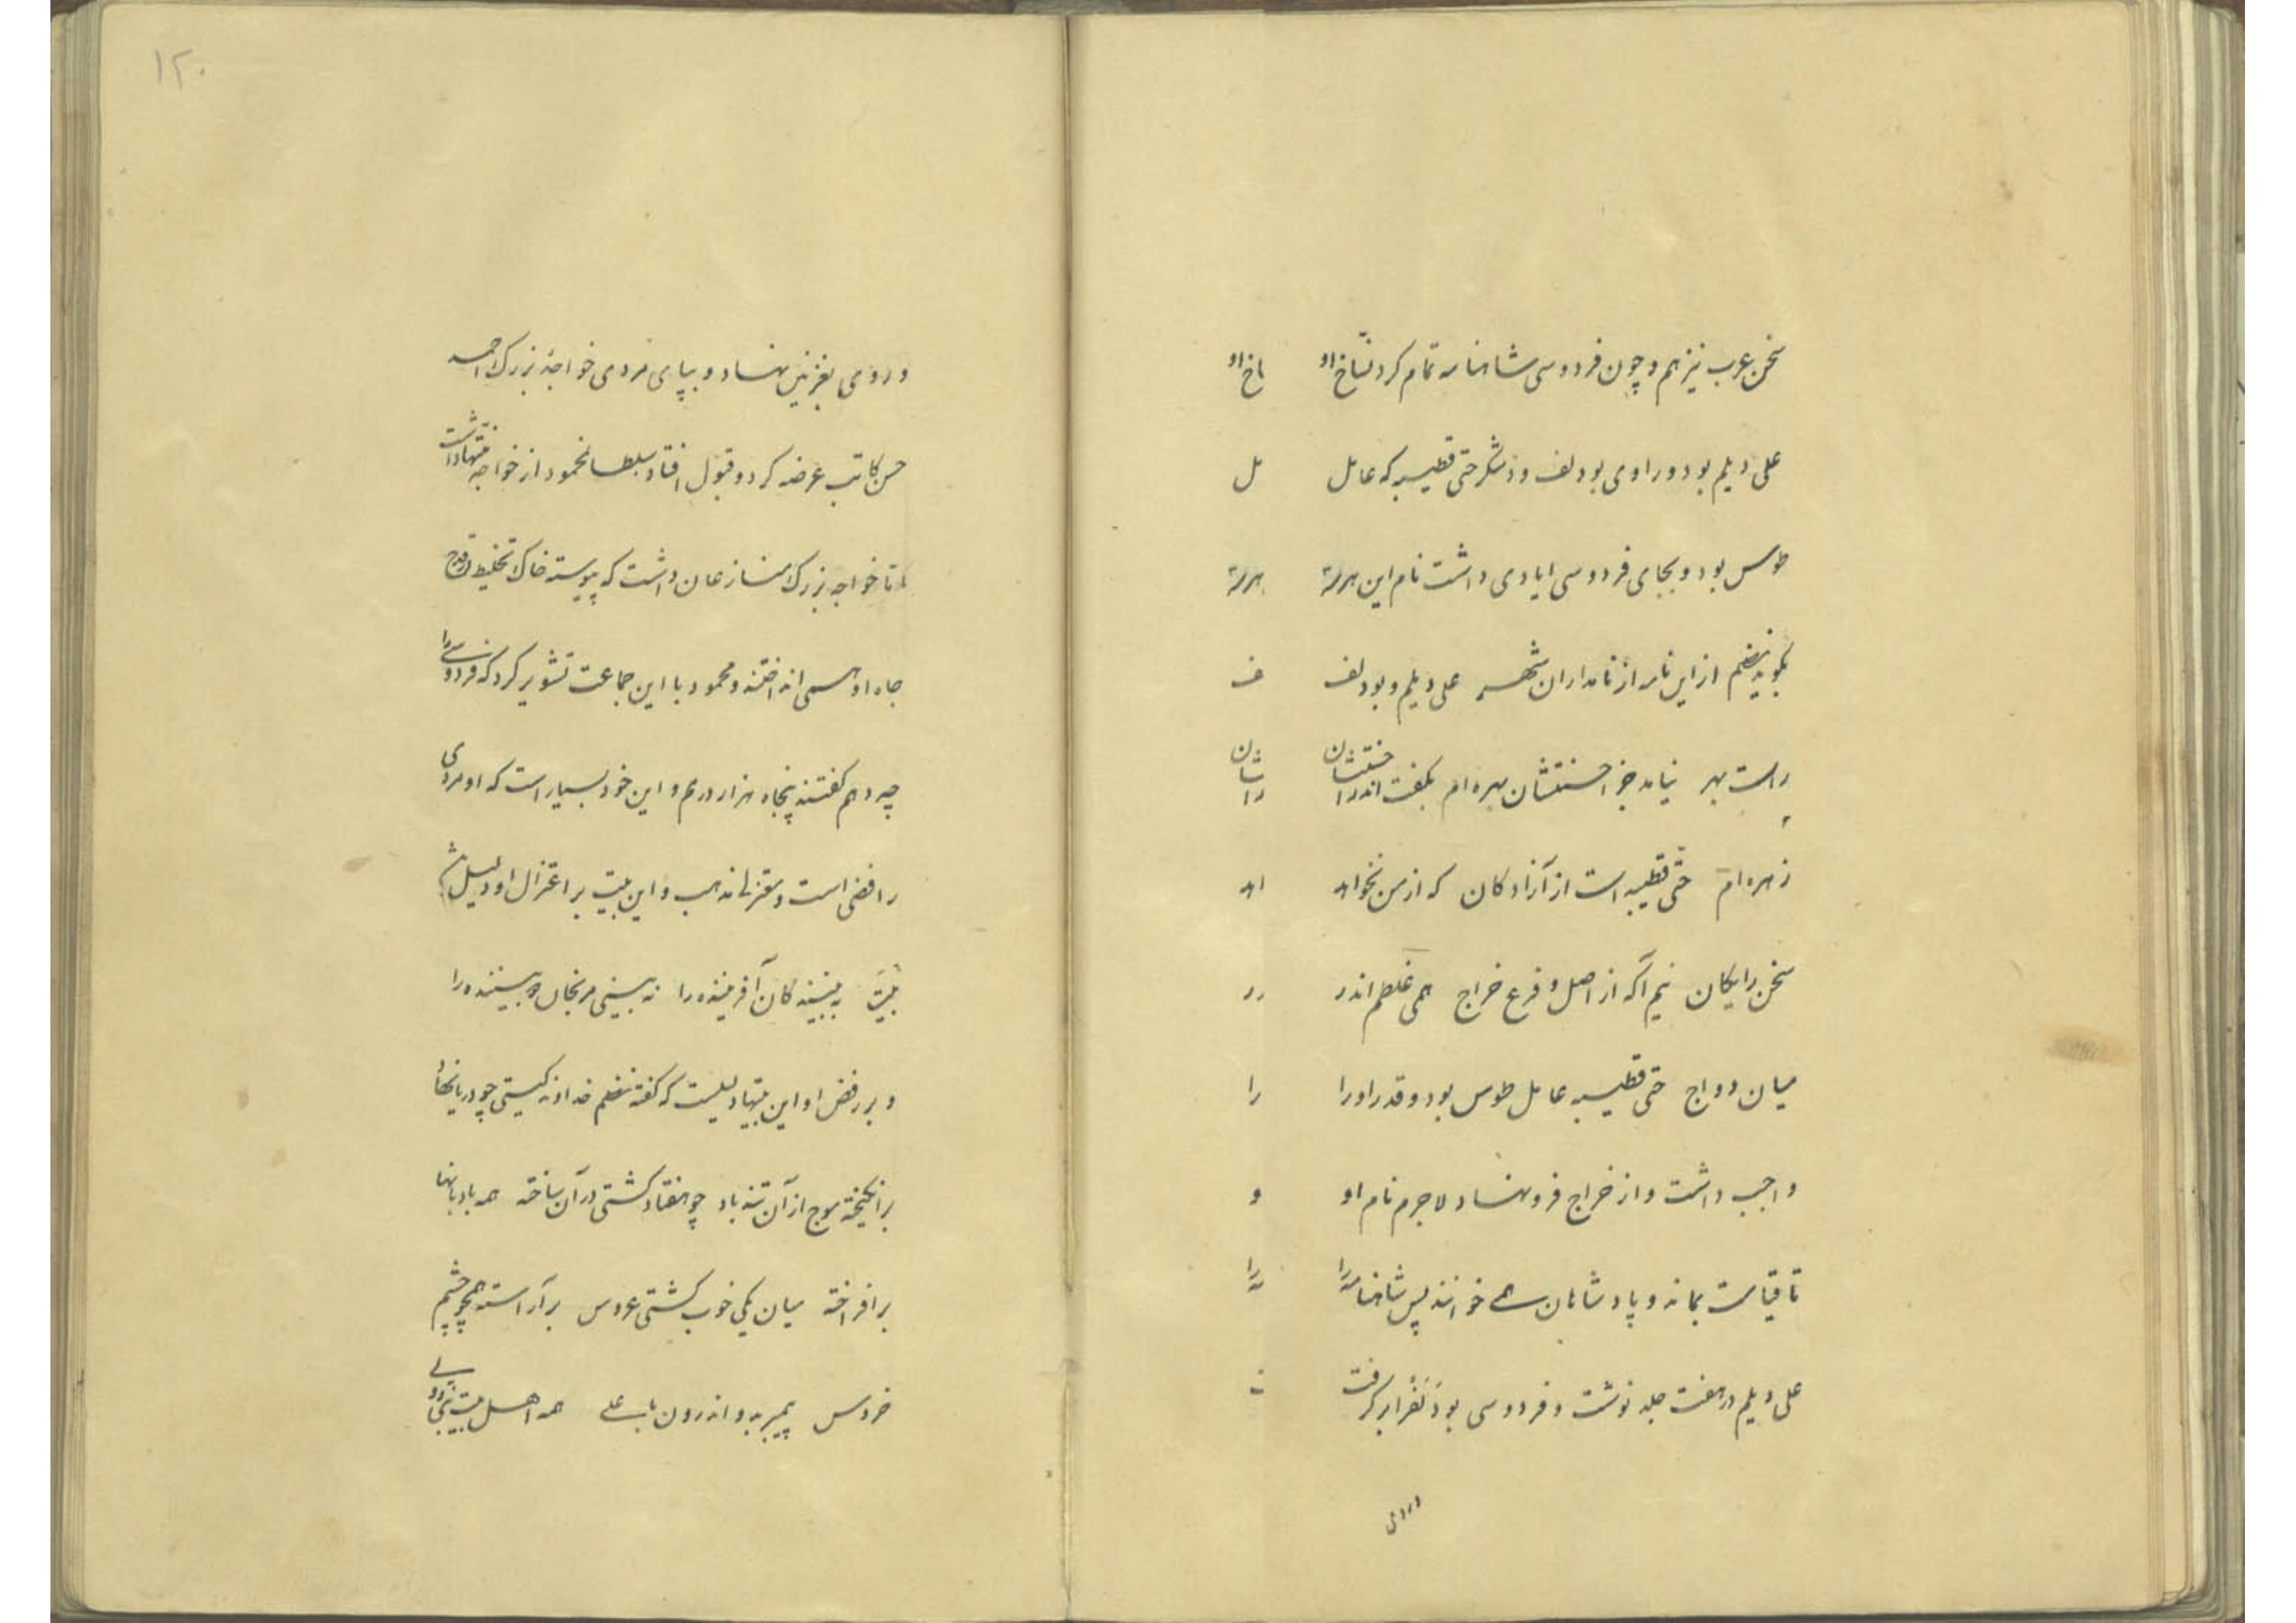 سخن عرب نیز هم و چون فردوسی شاهنامه تمام کرد نسّاخ او
علی دیلم بود و راوی بودلف و وشکر حتی قطیبه که عامل
طوس بود و بجای فردوسی ایادی داشت نام این هر سه
بگوید نظم از این نامه از نامداران شهر علی دیلم و بودلف
راست بهر نیامد جز احسنتشان بهره ام بکفت اندر احسنتشان
زهره ام حتّی قطیبه است از آزادکان که از من نخواهد
سخن رایکان نیم آکه از اصل و فرع خراج همی غلطم اندر
میان دواج حتی قطیبه عامل طوس بود و قدر او را
واجب داشت و از خراج فرونهاد لاجرم نام او
تا قیامت بماند و پادشاهان همی خوانند پس شاهنامه را
علی دیلم در هفت جلد نوشت و فردوسی بودلف را برکرفت
و روی
۱۲۰
و روی بغزنین نهاد و بپای مردی خواجهٔ بزرک احمد
حسن کاتب عرضه کرد و قبول افتاد سلطان محمود از خواجه منتها داشت
اما خواجه بزرک منازعان داشت که پیوسته خاک تخلیط در قدح
جاه او همی انداختند و محمود با این جماعت تشویر کرد که فردوسی را
چه دهم کفتند پنجاه هزار درم و این خود بسیار است که او مردی
رافضی است و معتزلی مذهب و این بیت بر اعتزال او دلیل
بیت به بینندکان آفریننده را نه بینی مرنجان دو بیننده را
و بر رفض او این بیتها دلیلست که کفته نظم خداوند کیتی چو دریا نهاد
برانکیخته موج از آن تندباد چو هفتاد کشتی در آن ساخته همه بادبانها
برافراخته میان یکی خوب کشتی عروس برآراسته همچو چشم
خروس پیمبر بدو اندرون با علی همه اهل بیت نبی و وصی